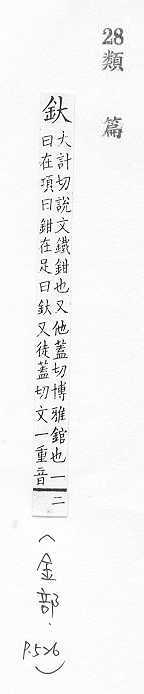 28
類篇
釱
大計切說文鐵鉗也又他蓋切博雅錧也一
曰在項曰鉗在足曰釱又徒蓋切文一重音
二
(金部.
P.526)